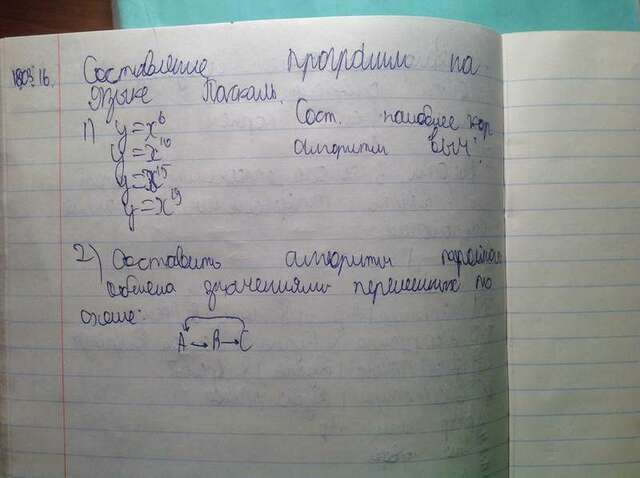 18.03.16.
Составление программ на
языке Паскаль.
1) y=x⁶ Сост. наиболее кор
y=x¹⁰ алгоритм выч:
y=x¹⁵
y=x¹⁹
2) Составить алгоритм
обмена значениями переменных по
схеме:
A→B→C